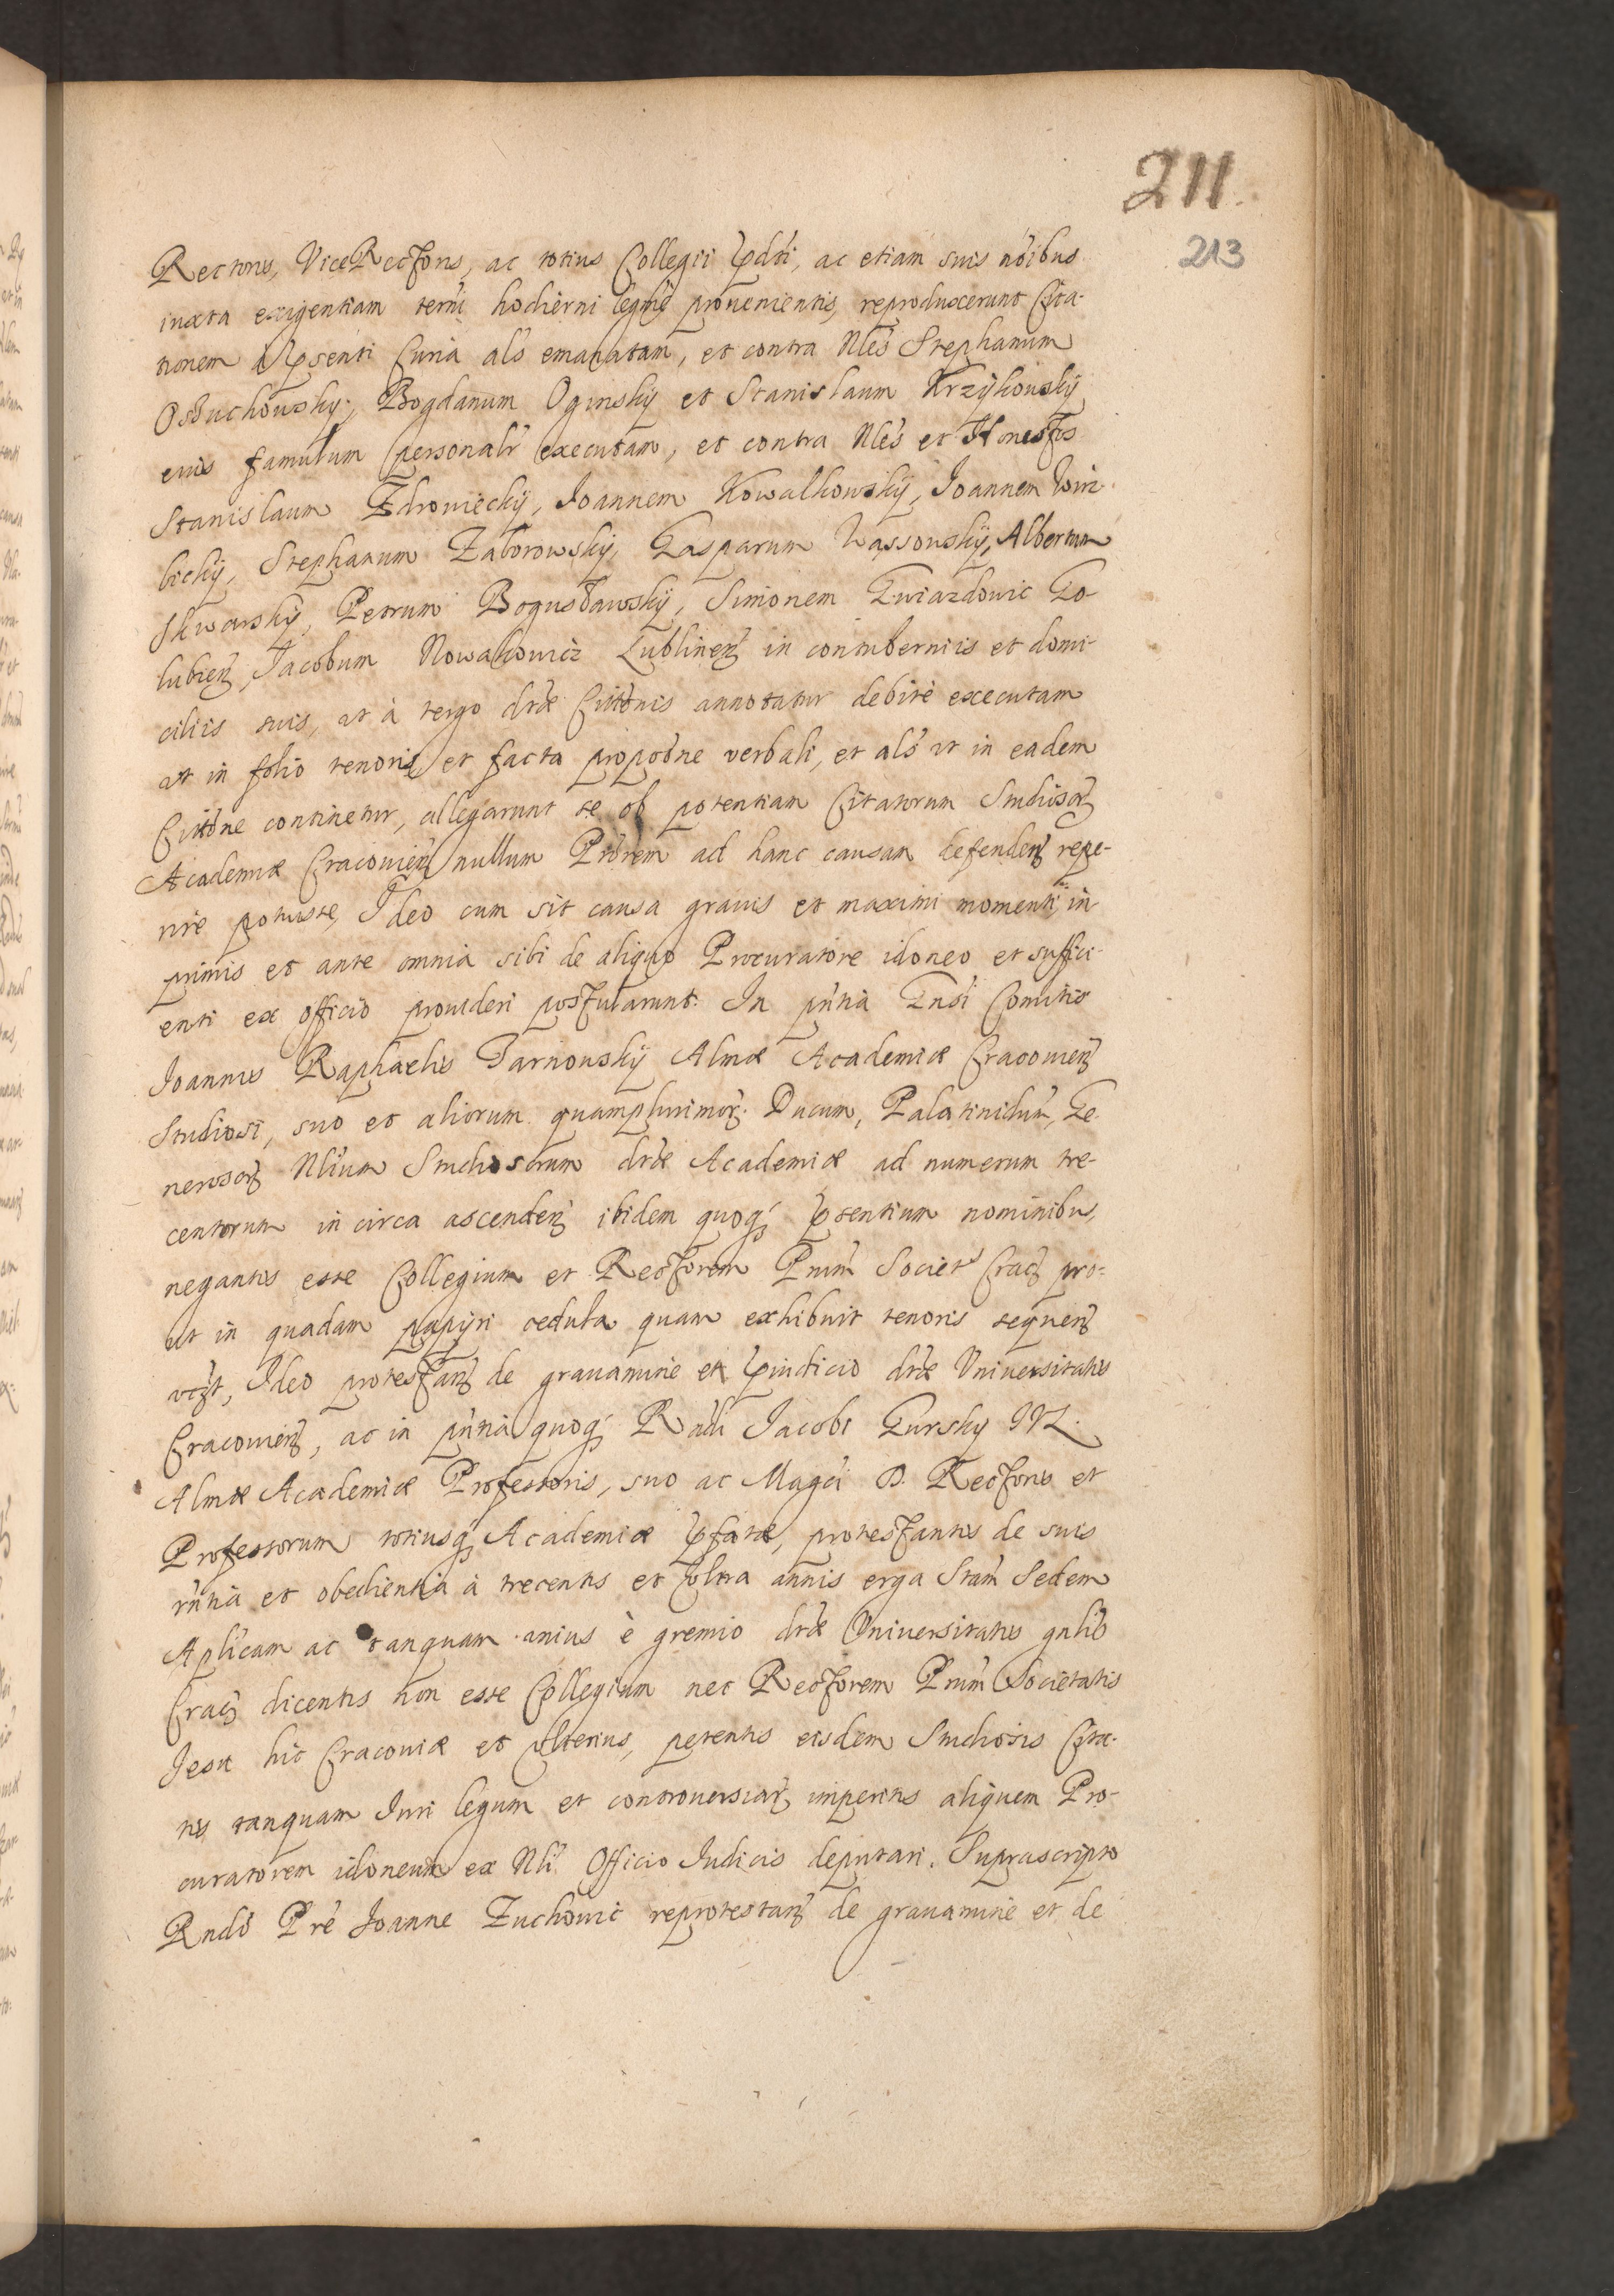 211.
213
Rectoris, ViceRectoris, ac totius Collegii pdti, ac etiam suis noibus
iuxta exigentiam termi hodierni legme prouenientis, reproduxerunt Cita-
tionem psenti Curia als emanatam, et contra Nles Stephanum
Osuchowsky, Bogdanum Oginsky et Stanislaum Krzykowsky
euis famulum personalr executam, et contra Nles et Honestos
Stanislaum Zdrowiecky, Joannem Kowalkowsky, Joannem Wirz-
bicky, Stephanum Zaborowsky, Gasparum Wassowsky, Albertum
Skwarsky, Petrum Bogusławsky, Simonem Gwiazdowic Go-
lubien, Jacobum Nowakowicz Lublinen in contuberniis et domi-
ciliis suis, ut à tergo dtæ Cittonis annotatur debitè executam
ut in folio tenoris, et facta propoöne verbali, et als ut in eadem
Cittöne continetur, allegarunt se ob potentiam Citatorum Studiosor
Academiæ Cracouien nullum Prörem ad hanc causam defenden repe-
rire potuisse, Ideo cum sit causa grauis et maximi momenti, in
primis et ante omnia sibi de aliquo Procuratore idoneo et suffici-
enti ex officio prouideri postularunt. In pntia Gnsi Comitis
Joannis Raphaelis Tarnowsky Almæ Academiæ Cracouien
Studiosi, suo et aliorum quamplurimor Ducum, Palatinidum, Ge-
nerosor Nlium Studiosorum dtæ Academiæ ad numerum tre-
centorum in circa ascenden ibidem quoq psentium nominibus,
negantis esse Collegium et Rectorem Prum Societs Crac pro-
ut in quadam papyri cedula quam exhibuit tenoris sequen
uczt, Ideo protestan de grauamine et piudicio dtæ Vniuersitatis
Cracouien, ac in pntia quoq Rndi Jacobi Gursky IVL.
Almæ Academiæ Professoris, suo ac Magci D. Rectoris et
Professorum totiusq Academiæ pfatæ, protestantis de suis
rntia et obedientia à trecentis et vltra annis erga Stam Sedem
Aplicam ac tanquam unius è gremio dtæ Vniuersitatis gnlis
Crac dicentis non esse Collegium nec Rectorem Prum Societatis
Jesu hic Cracouiæ et vlterius, petentis eisdem Studiosis Cita-
tis tanquam Iuri legum et controuersiar imperitis aliquem Pro-
curatorem idoneum ex Nli Officio Iudicis deputari. Suprascripto
Rndo Pre Joanne Zuchowic reprotestan de grauamine et de